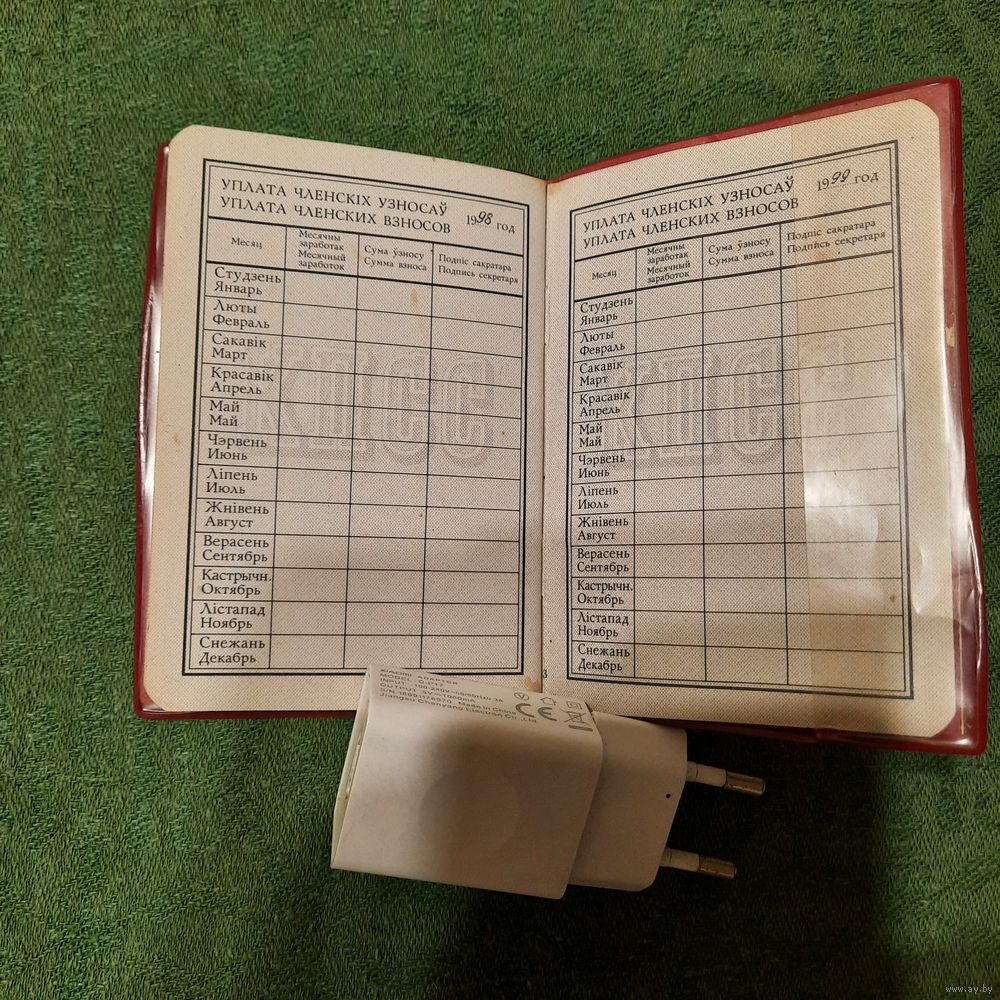 УПЛАТА ЧЛЕНСКІХ УЗНОСАЎ
УПЛАТА ЧЛЕНСКИХ ВЗНОСОВ
1998 год
Месяц
Месячны заработак
Месячный заработок
Сума ўзносу
Сумма взноса
Подпіс сакратара
Подпись секретаря
Студзень
Январь
Люты
Февраль
Сакавік
Март
Красавік
Апрель
Май
Май
Чэрвень
Июнь
Ліпень
Июль
Жнівень
Август
Верасень
Сентябрь
Кастрычн.
Октябрь
Лістапад
Ноябрь
Снежань
Декабрь
КПСС
УПЛАТА ЧЛЕНСКІХ УЗНОСАЎ
УПЛАТА ЧЛЕНСКИХ ВЗНОСОВ
1999 год
Месяц
Месячны заработак
Месячный заработок
Сума ўзносу
Сумма взноса
Подпіс сакратара
Подпись секретаря
Студзень
Январь
Люты
Февраль
Сакавік
Март
Красавік
Апрель
Май
Май
Чэрвень
Июнь
Ліпень
Июль
Жнівень
Август
Верасень
Сентябрь
Кастрычн.
Октябрь
Лістапад
Ноябрь
Снежань
Декабрь
КПСС
3
ADAPTER
MODEL
INPUT
OUTPUT 5V 1000mA
S/N Made in China
Jiangsu Chenyang Electron Co.,Ltd
CE
www.ay.by